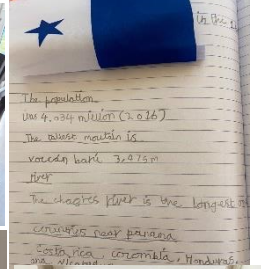 The population
Was 4.034 million (2016)
The tallest moutain is
volcán barú 3,475m
River
The chagres river is the longest
countries near panama
Costa rica, colombia, Honduras,
and